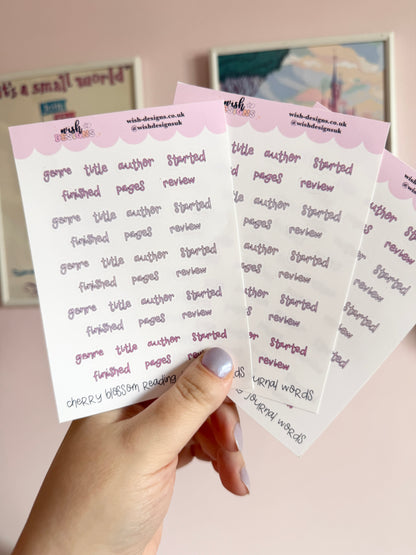 it's a small world
wish
DESIGNS
wish-designs.co.uk
@wishdesignsuk
genre title author started
finished pages review
genre title author started
finished pages review
genre title author started
finished pages review
genre title author started
finished pages review
genre title author started
finished pages review
cherry blossom reading
wish
DESIGNS
wish-designs.co.uk
@wishdesignsuk
title author started
pages review
author started
pages review
author started
pages review
author started
pages review
started
review
journal words
started
review
started
review
started
review
started
review
journal words